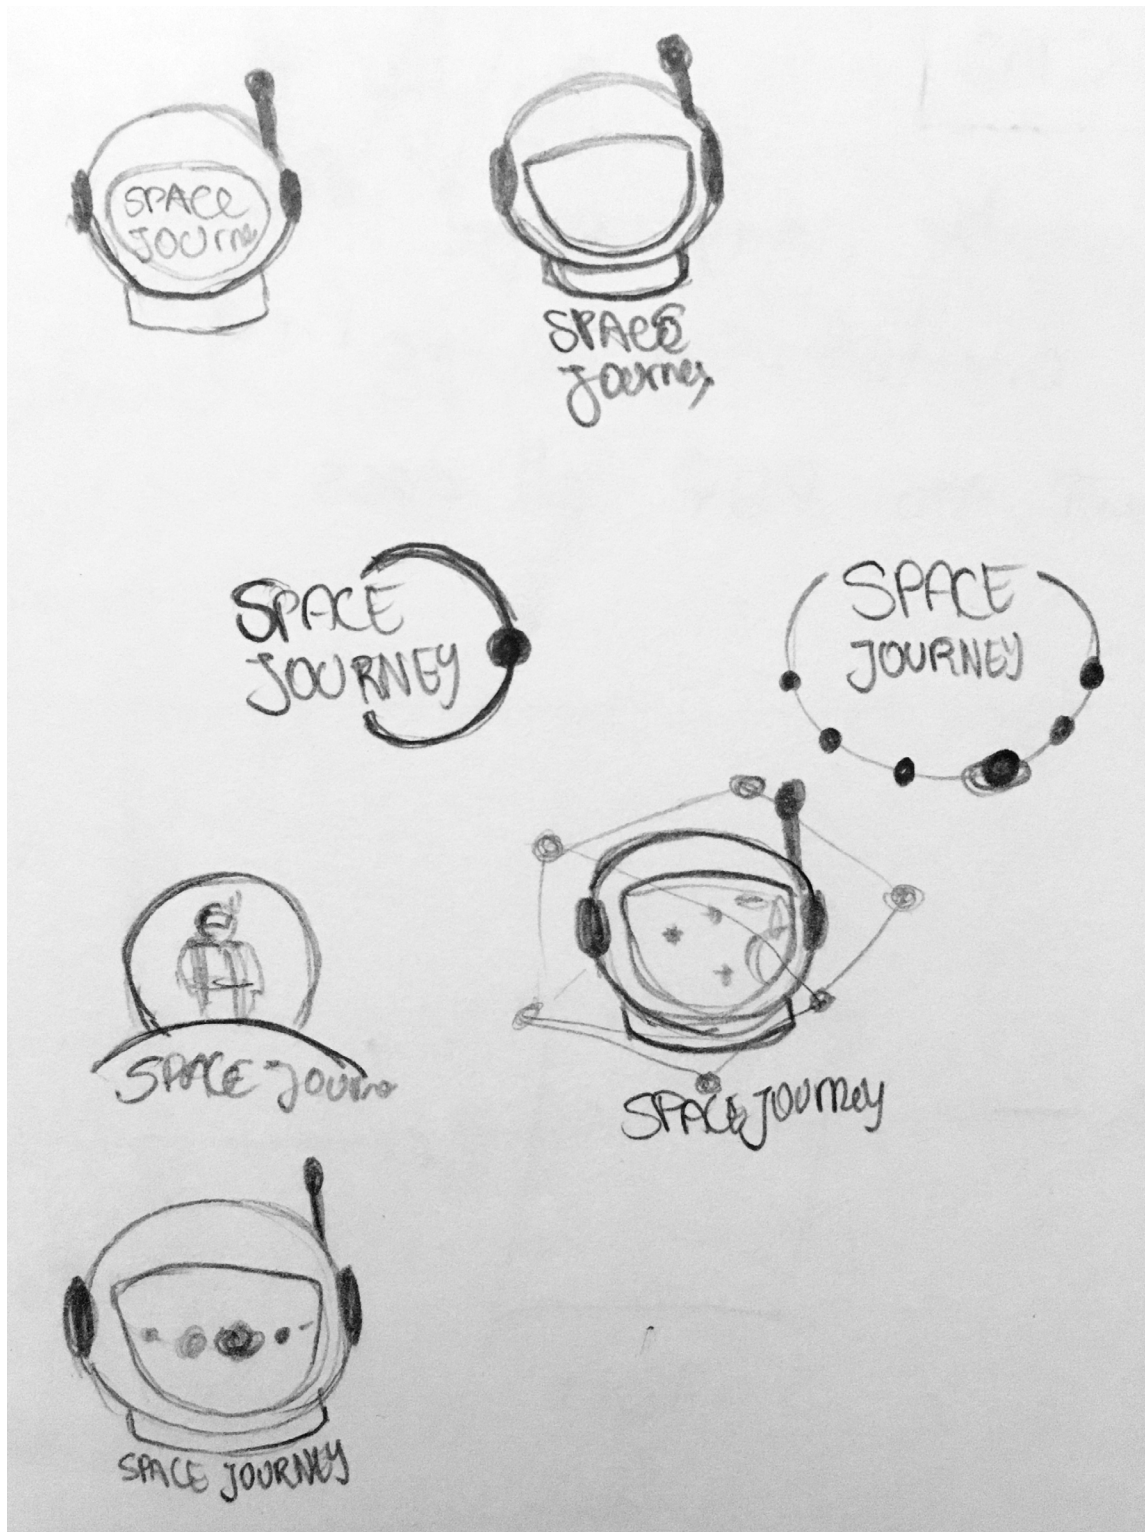 SPACE
JOURNE
SPACE
Journey
SPACE
JOURNEY
SPACE
JOURNEY
SPACE JOURN
SPACE JOURney
SPACE JOURNEY